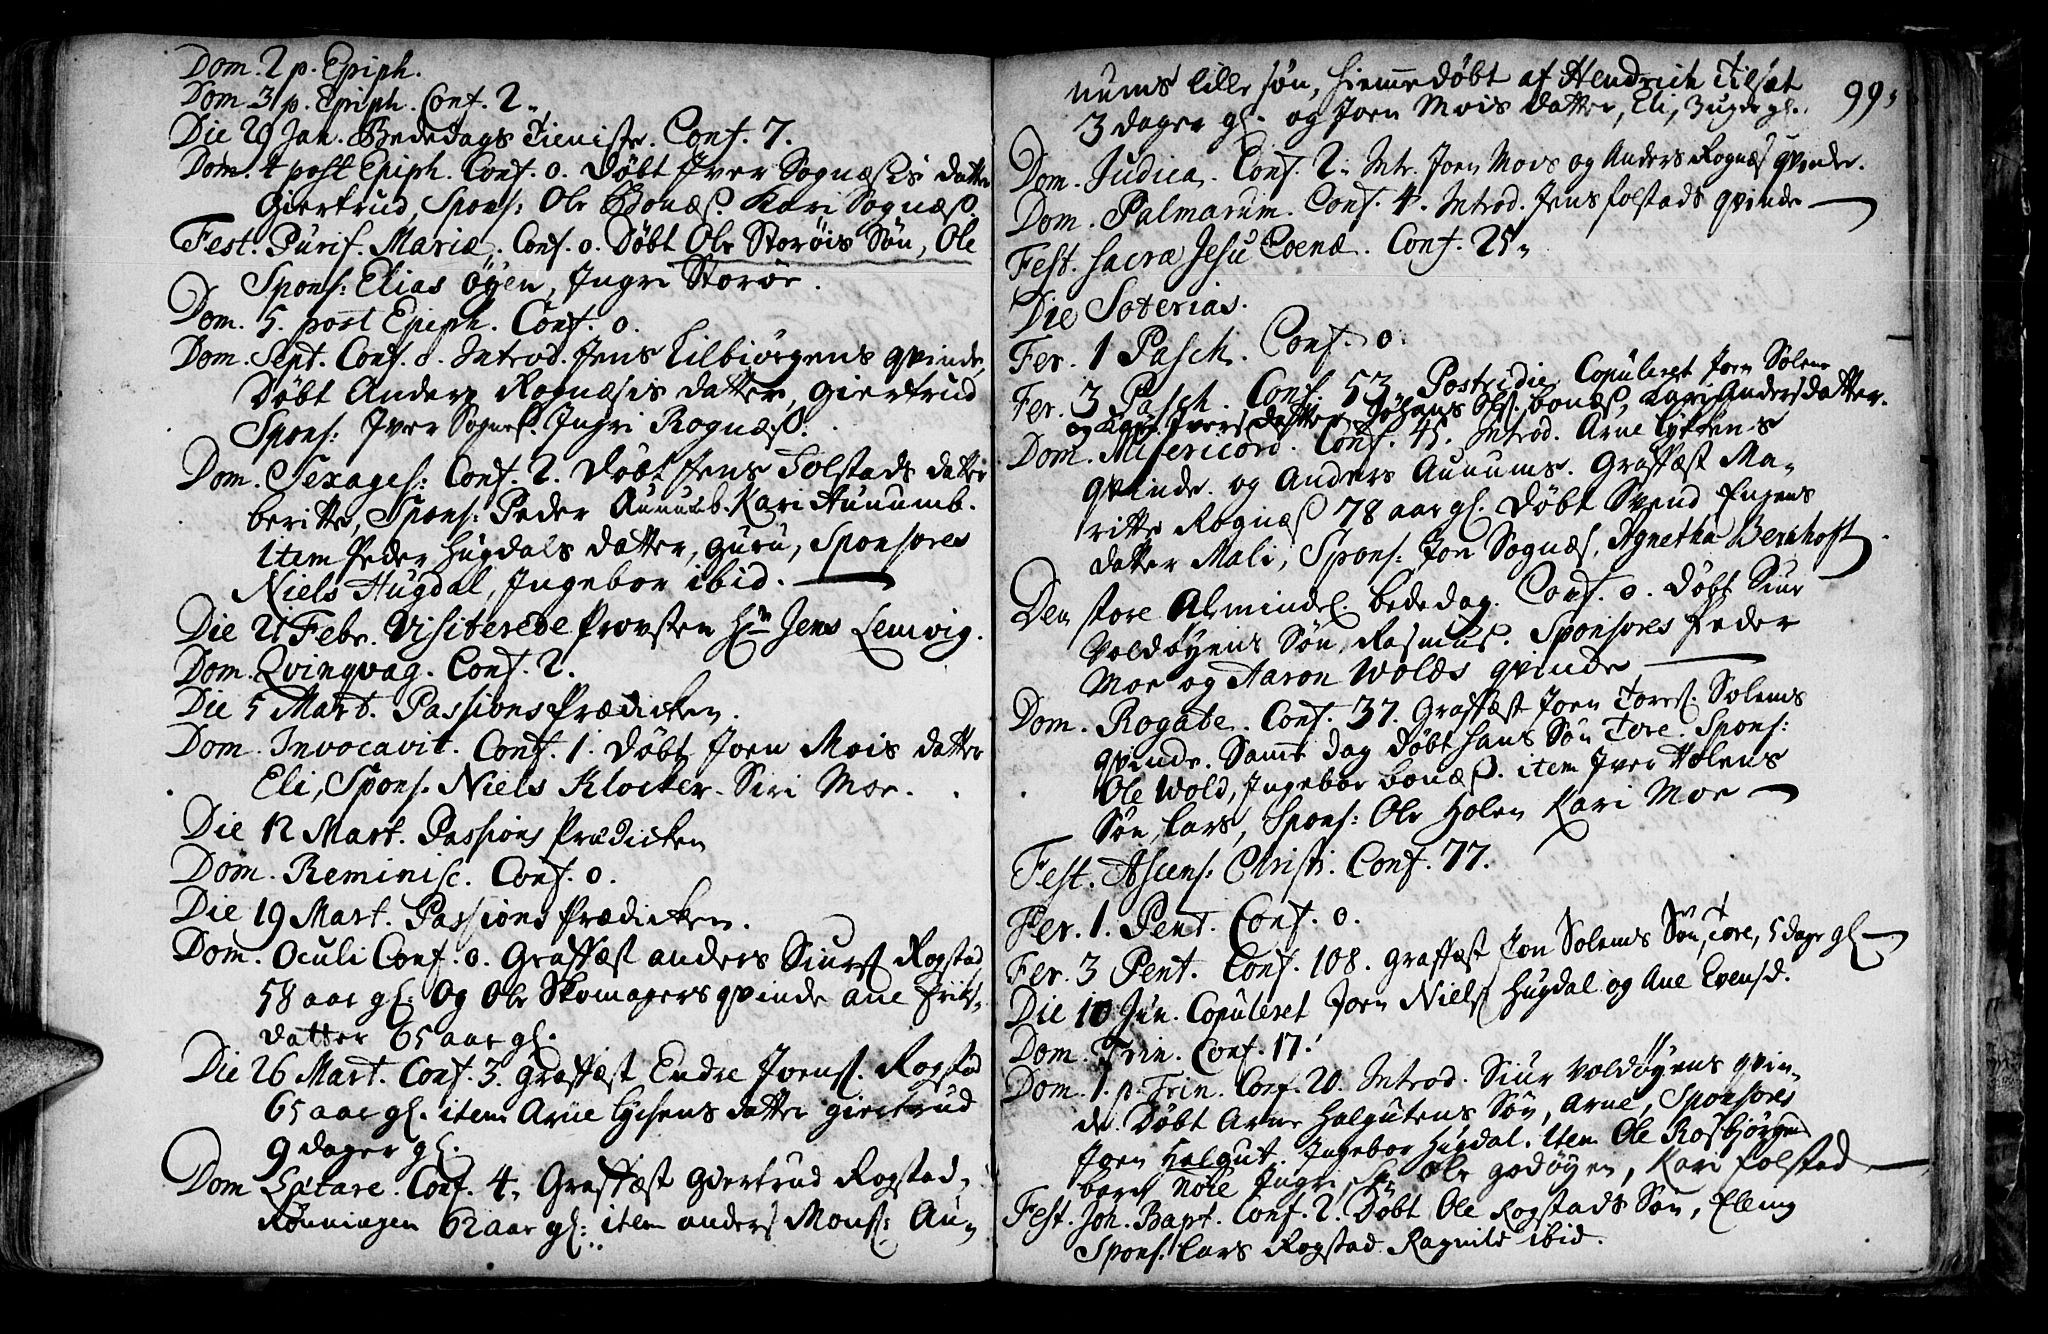 Dom. 2 p. Epiph.
Dom. 3 p. Epiph. Conf. 2.
Die 29 Jan. Bededags Tieniste. Conf. 7.
Dom. 4 post Epiph. Conf. 0. Døbt Iver Sognæsis datter
Giertrud, Spons: Ole Bonæs. Kari Sognæs.
Fest. Purif. Mariæ. Conf. 0. Døbt Ole Storøis Søn, Ole
Spons: Elias Øyen, Ingri Storøe.
Dom. 5. post Epiph. Conf. 0.
Dom. Sept. Conf. 0. Introd. Jens Lilbiørgens qvinde,
Døbt Anders Rognæsis datter, Giertrud
Spons: Iver Sognes. Ingri Rognæs.
Dom. Sexages: Conf. 2. Døbt Jens Folstads datter
beritte, Spons: Peder Aunumb. Kari Aunumb.
item Peder Hugdals datter, Guru, Sponsores
Niels Hugdal, Ingebor ibid.
Die 21 Febr. Visiterede Provsten Hn Jens Lemvig.
Dom. Qvinqvag. Conf. 2.
Die 5 Mart. Passions Prædicken.
Dom. Invocavit. Conf. 1. Døbt Joen Mois datter
Eli, Spons. Niels Klocker. Siri Moe.
Die 12 Mart. Passions Prædicken
Dom. Reminisc. Conf. 0.
Die 19 Mart. Passions Prædicken.
Dom. Oculi Conf. 0. Graffæst anders Siurs Rogstad
58 aar gl. Og Ole Skomagers qvinde ane Erics-
datter 65 aar gl.
Die 26 Mart. Conf. 3. Graffæst Endre Joens. Rogstad
65 aar gl. item Arne Lychens datter giertrud
9 dager gl.
Dom Lætare. Conf. 4. Graffæst Giertrud Rogstad-
Rønningen 62 aar gl: item anders Mons: Au-
99.
nums lille søn, hiemmedøbt af Hendrich Tilset
3 dager gl. og Joen Mois datter, Eli, 3 uger gl.
Dom. Judica. Conf. 2. Intr. Joen Moes og Anders Rognæs qvinde.
Dom. Palmarum. Conf. 4. Introd. Jens folstads qvinde
Fest. Sacræ Jesu Coenæ. Conf. 25.
Die Soterias.
Fer. 1 Pasch. Conf. 0.
Fer. 3 Pasch. Conf. 53. Postridie Copuleret Joen Solem
og Kari Iversdatter, Johans Ols. bonæs, Kari Andersdatter.
Dom. Misericord. Conf. 45. Introd. Arne Lykkens
qvinde. og Anders Aunums. Graffæst Ma-
ritte Rognæs 78 aar gl. Døbt Svend Engens
datter Mali, Spons: Jon Sognæs, Agnetha Bernhoft.
Den store Almindel. bededag. Conf. 0. Døbt Siur
Voldøyens Søn, Rasmus. Sponsores Peder
Moe og Aaron Wolds qvinde
Dom. Rogate. Conf. 37. Graffæst Joen Tores. Solems
qvinde. Samme dag Døbt hans Søn Tore. Spons:
Ole Wold, Ingebor bonæs. item Iver Holens
Søn, Lars, Spons: Ole Holen Kari Moe
Fest. Ascens: Christi. Conf. 77.
Fer. 1. Pent. Conf. 0.
Fer. 3 Pent. Conf. 108. Graffæst Jon Solems Søn, Tore, 5 dage gl
Die 10 Jun. Copuleret Joen Niels Hugdal og Ane Evensd.
Dom. Trin. Conf. 17.
Dom. 1. p. Trin. Conf. 20. Introd. Siur Voldøyens qvin-
de. Døbt Arne Halgutens Søn, Arne, Sponsores
Joen Halgut. Ingebor Hugdal. Item Ole Rosbjørgens
barn Ingri Ole Godøyen, Kari folstad
Fest. Joh. Bapt. Conf. 2. Døbt Ole Rogstads Søn, Elling
Spons. Lars Rogstad. Ragnild ibid.